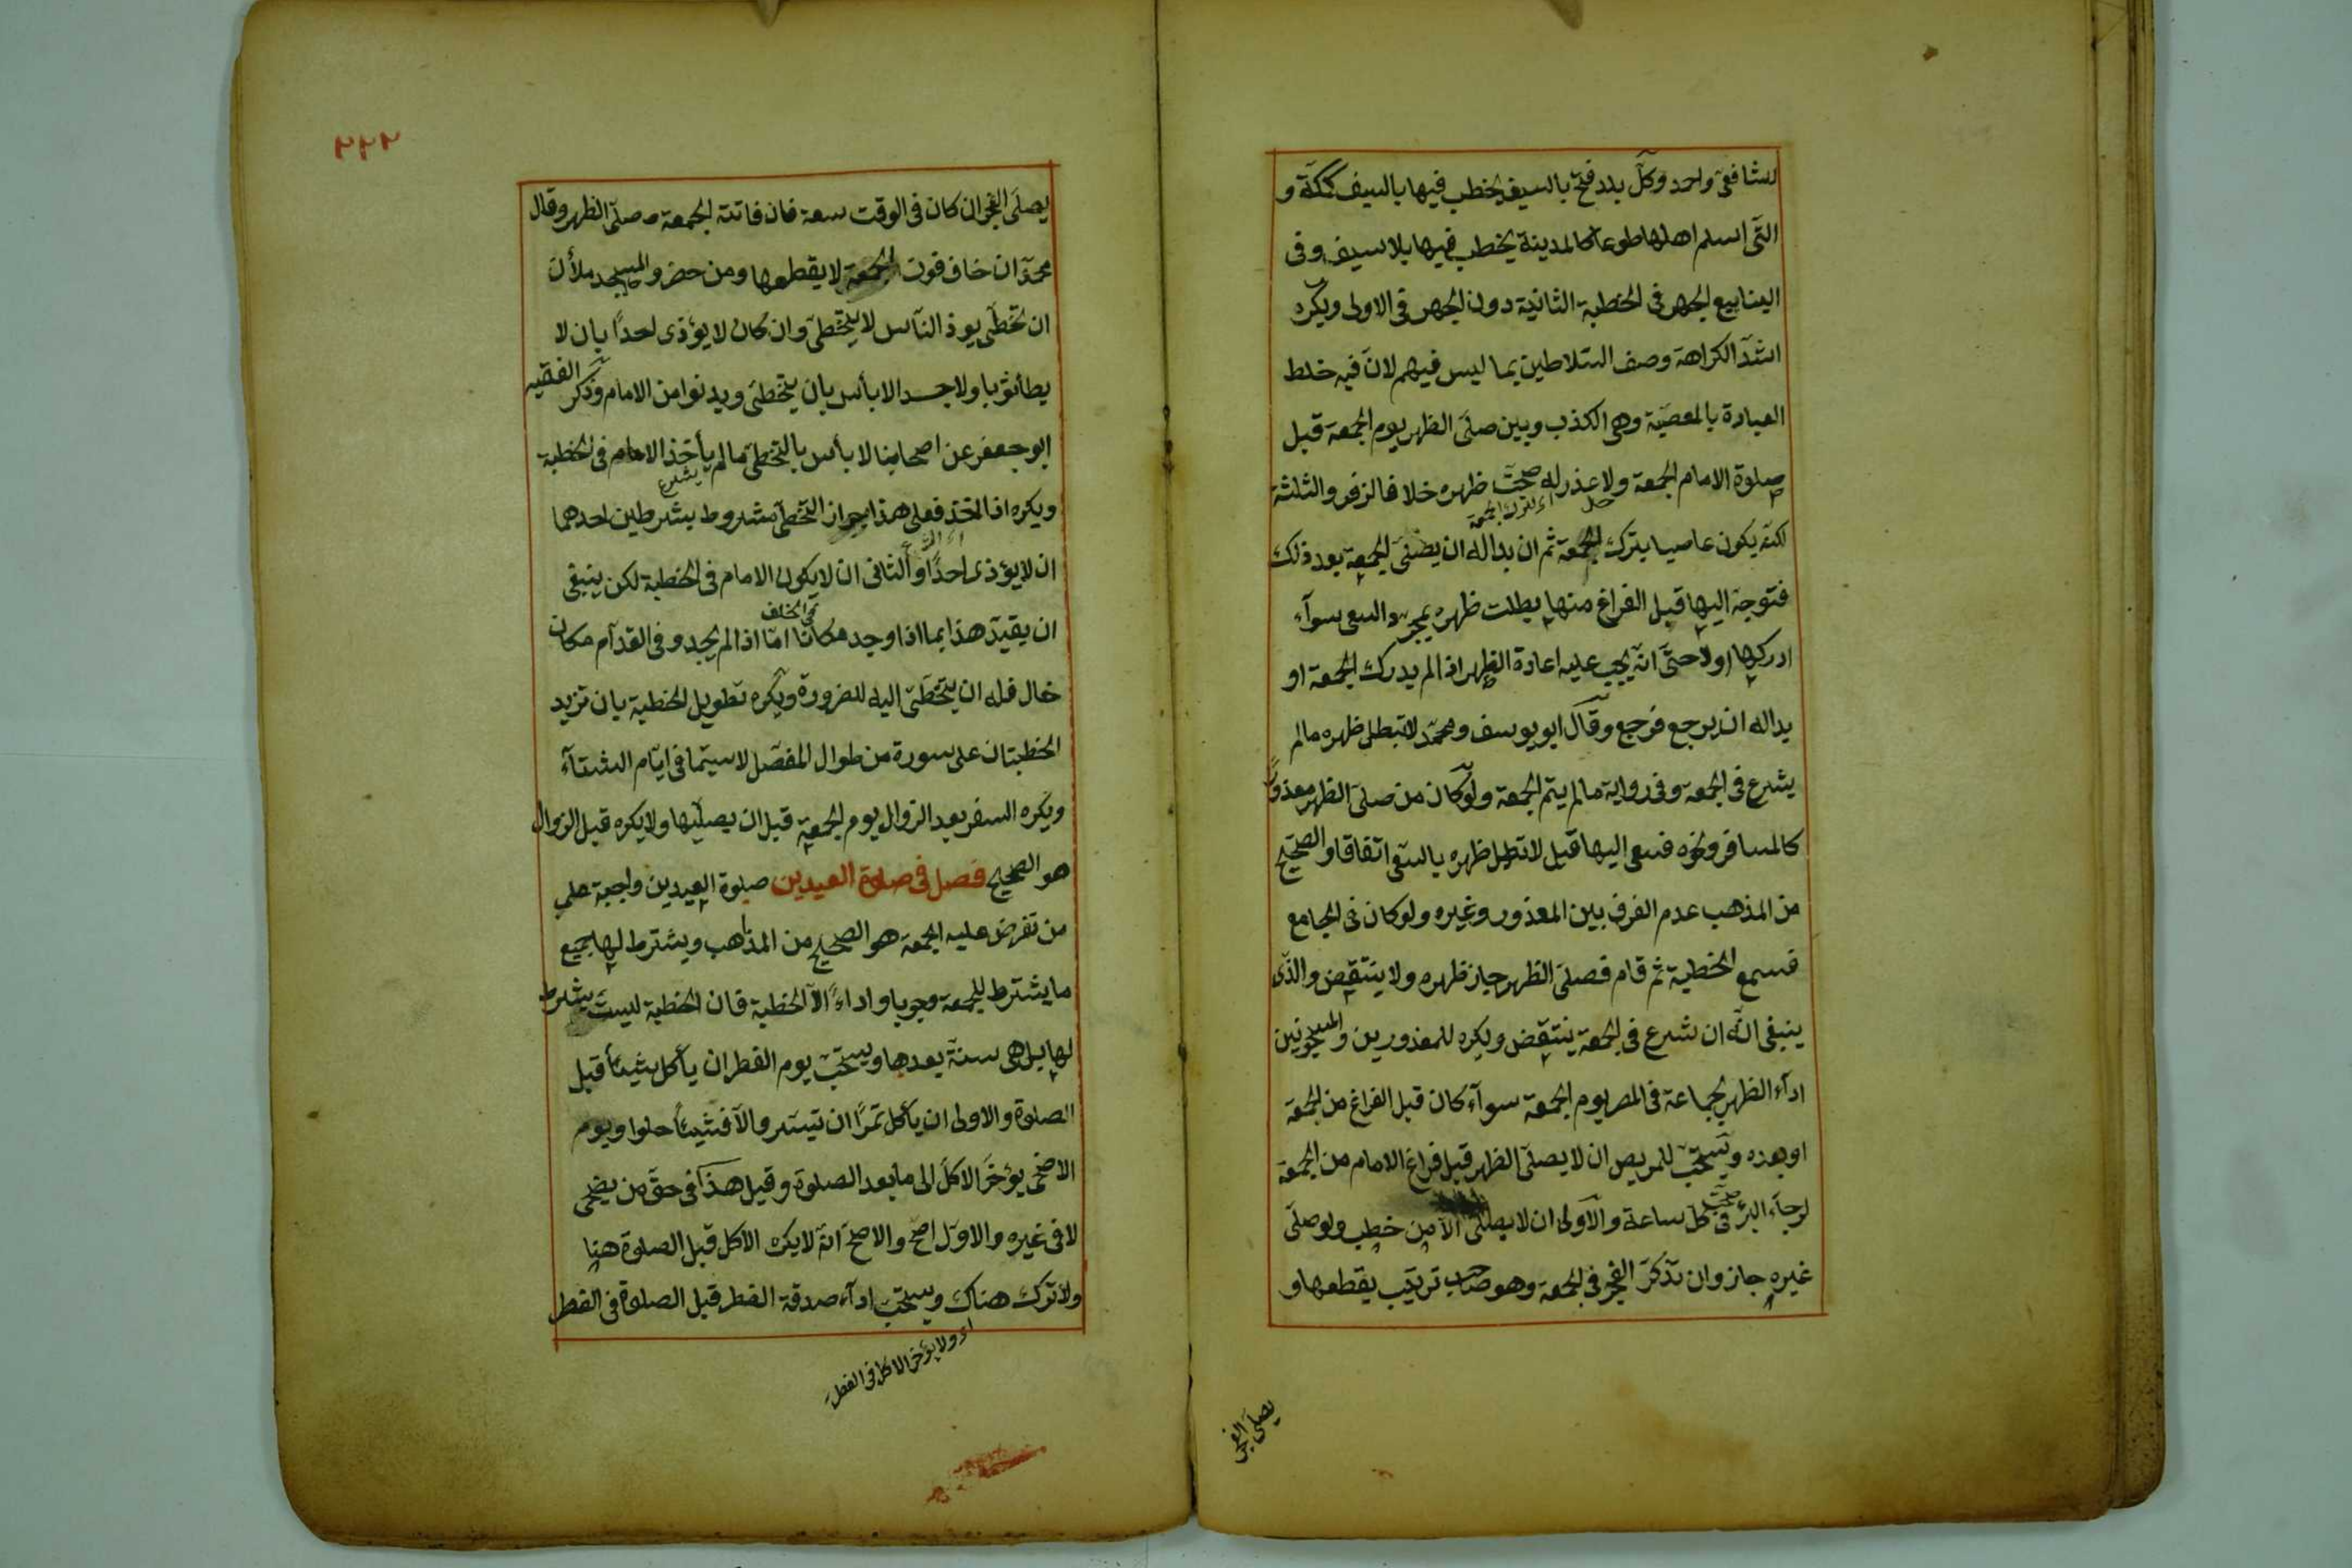 للشافعى واحمد وكل بلد فتح بالسيف يخطب فيها بالسيف كمكة و
التى اسلم اهلها طوعا كالمدينة يخطب فيها بلا سيف وفى
الينابيع الجهر فى الخطبة الثانية دون الجهر فى الاولى ويكره
اشد الكراهة وصف السلاطين بما ليس فيهم لان فيه خلط
العبادة بالمعصية وهى الكذب ومن صلى الظهر يوم الجمعة قبل
صلوة الامام الجمعة ولا عذر له صحت ظهره خلافا لزفر والثلثة
اى بترك الجمعة
لكنه يكون عاصيا بترك الجمعة ثم ان بدا له ان يصلى الجمعة بعد ذلك
فتوجه اليها قبل الفراغ منها بطلت ظهره بمجرد السعى سوآء
ادركها اولا حتى انه يجب عليه اعادة الظهر اذا لم يدرك الجمعة او
بدا له ان يرجع فرجع وقال ابو يوسف ومحمد لا تبطل ظهره مالم
يشرع فى الجمعة وفى رواية مالم يتم الجمعة ولو كان من صلى الظهر معذورًا
كالمسافر ونحوه فسعى اليها قيل لا تبطل ظهره بالسعى اتفاقا والصحيح
من المذهب عدم الفرق بين المعذور وغيره ولو كان فى الجامع
فسمع الخطبة ثم قام فصلى الظهر جاز ظهره ولا ينتقض والذى
ينبغى انه ان شرع فى الجمعة ينتقض ويكره للمعذورين والمسجونين
ادآء الظهر بجماعة فى المصر يوم الجمعة سوآء كان قبل الفراغ من الجمعة
او بعده ويستحب للمريض ان لا يصلى الظهر قبل فراغ الامام من الجمعة
لرجآء البرء فى كل ساعة والاولى ان لا يصلى الا من خطب ولو صلى
غيره جاز وان تذكر الفجر فى الجمعة وهو صاحب ترتيب يقطعها و
يصلى الفجر
٢٢٢
يصلى الفجر ان كان فى الوقت سعة فان فاتته الجمعة صلى الظهر وقال
محمد ان خاف فوت الجمعة لا يقطعها ومن حضر والمسجد ملأن
ان تخطى يوذ الناس لا يتخطى وان كان لا يؤذى احدًا بان لا
يطأ ثوبا ولا جسدا لا بأس بان يتخطى ويدنوا من الامام وذكر الفقيه
ابو جعفر عن اصحابنا لا بأس بالتخطى مالم يأخذ الامام فى الخطبة
يشرع
ويكره اذا اخذ فعلى هذا جواز التخطى مشروط بشرطين احدهما
ان لا يؤذى احدًا والثانى ان لا يكون الامام فى الخطبة لكن ينبغى
فى الخلف
ان يقيد هذا بما اذا وجد مكانا اما اذا لم يجد وفى القدام مكان
خال فله ان يتخطى اليه للضرورة ويكره تطويل الخطبة بان تزيد
الخطبتان على سورة من طوال المفصل لا سيما فى ايام الشتآء
ويكره السفر بعد الزوال يوم الجمعة قبل ان يصليها ولا يكره قبل الزوال
هو الصحيح فصل فى صلوة العيدين صلوة العيدين واجبة على
من تفرض عليه الجمعة هو الصحيح من المذاهب ويشترط لها جميع
ما يشترط للجمعة وجوبا واداءً الا الخطبة فان الخطبة ليست بشرط
لها بل هى سنة بعدها ويستحب يوم الفطر ان يأكل شيئا قبل
الصلوة والاولى ان يأكل تمرًا ان تيسر والا فشيئا حلوا ويوم
الاضحى يؤخر الاكل الى ما بعد الصلوة وقيل هذا فى حق من يضحى
لا فى غيره والاول اصح والاصح انه لا يكره الاكل قبل الصلوة هنا
ولا ترك هناك ويستحب ادآء صدقة الفطر قبل الصلوة فى الفطر
اى ولا يؤخر الاكل فى الفطر